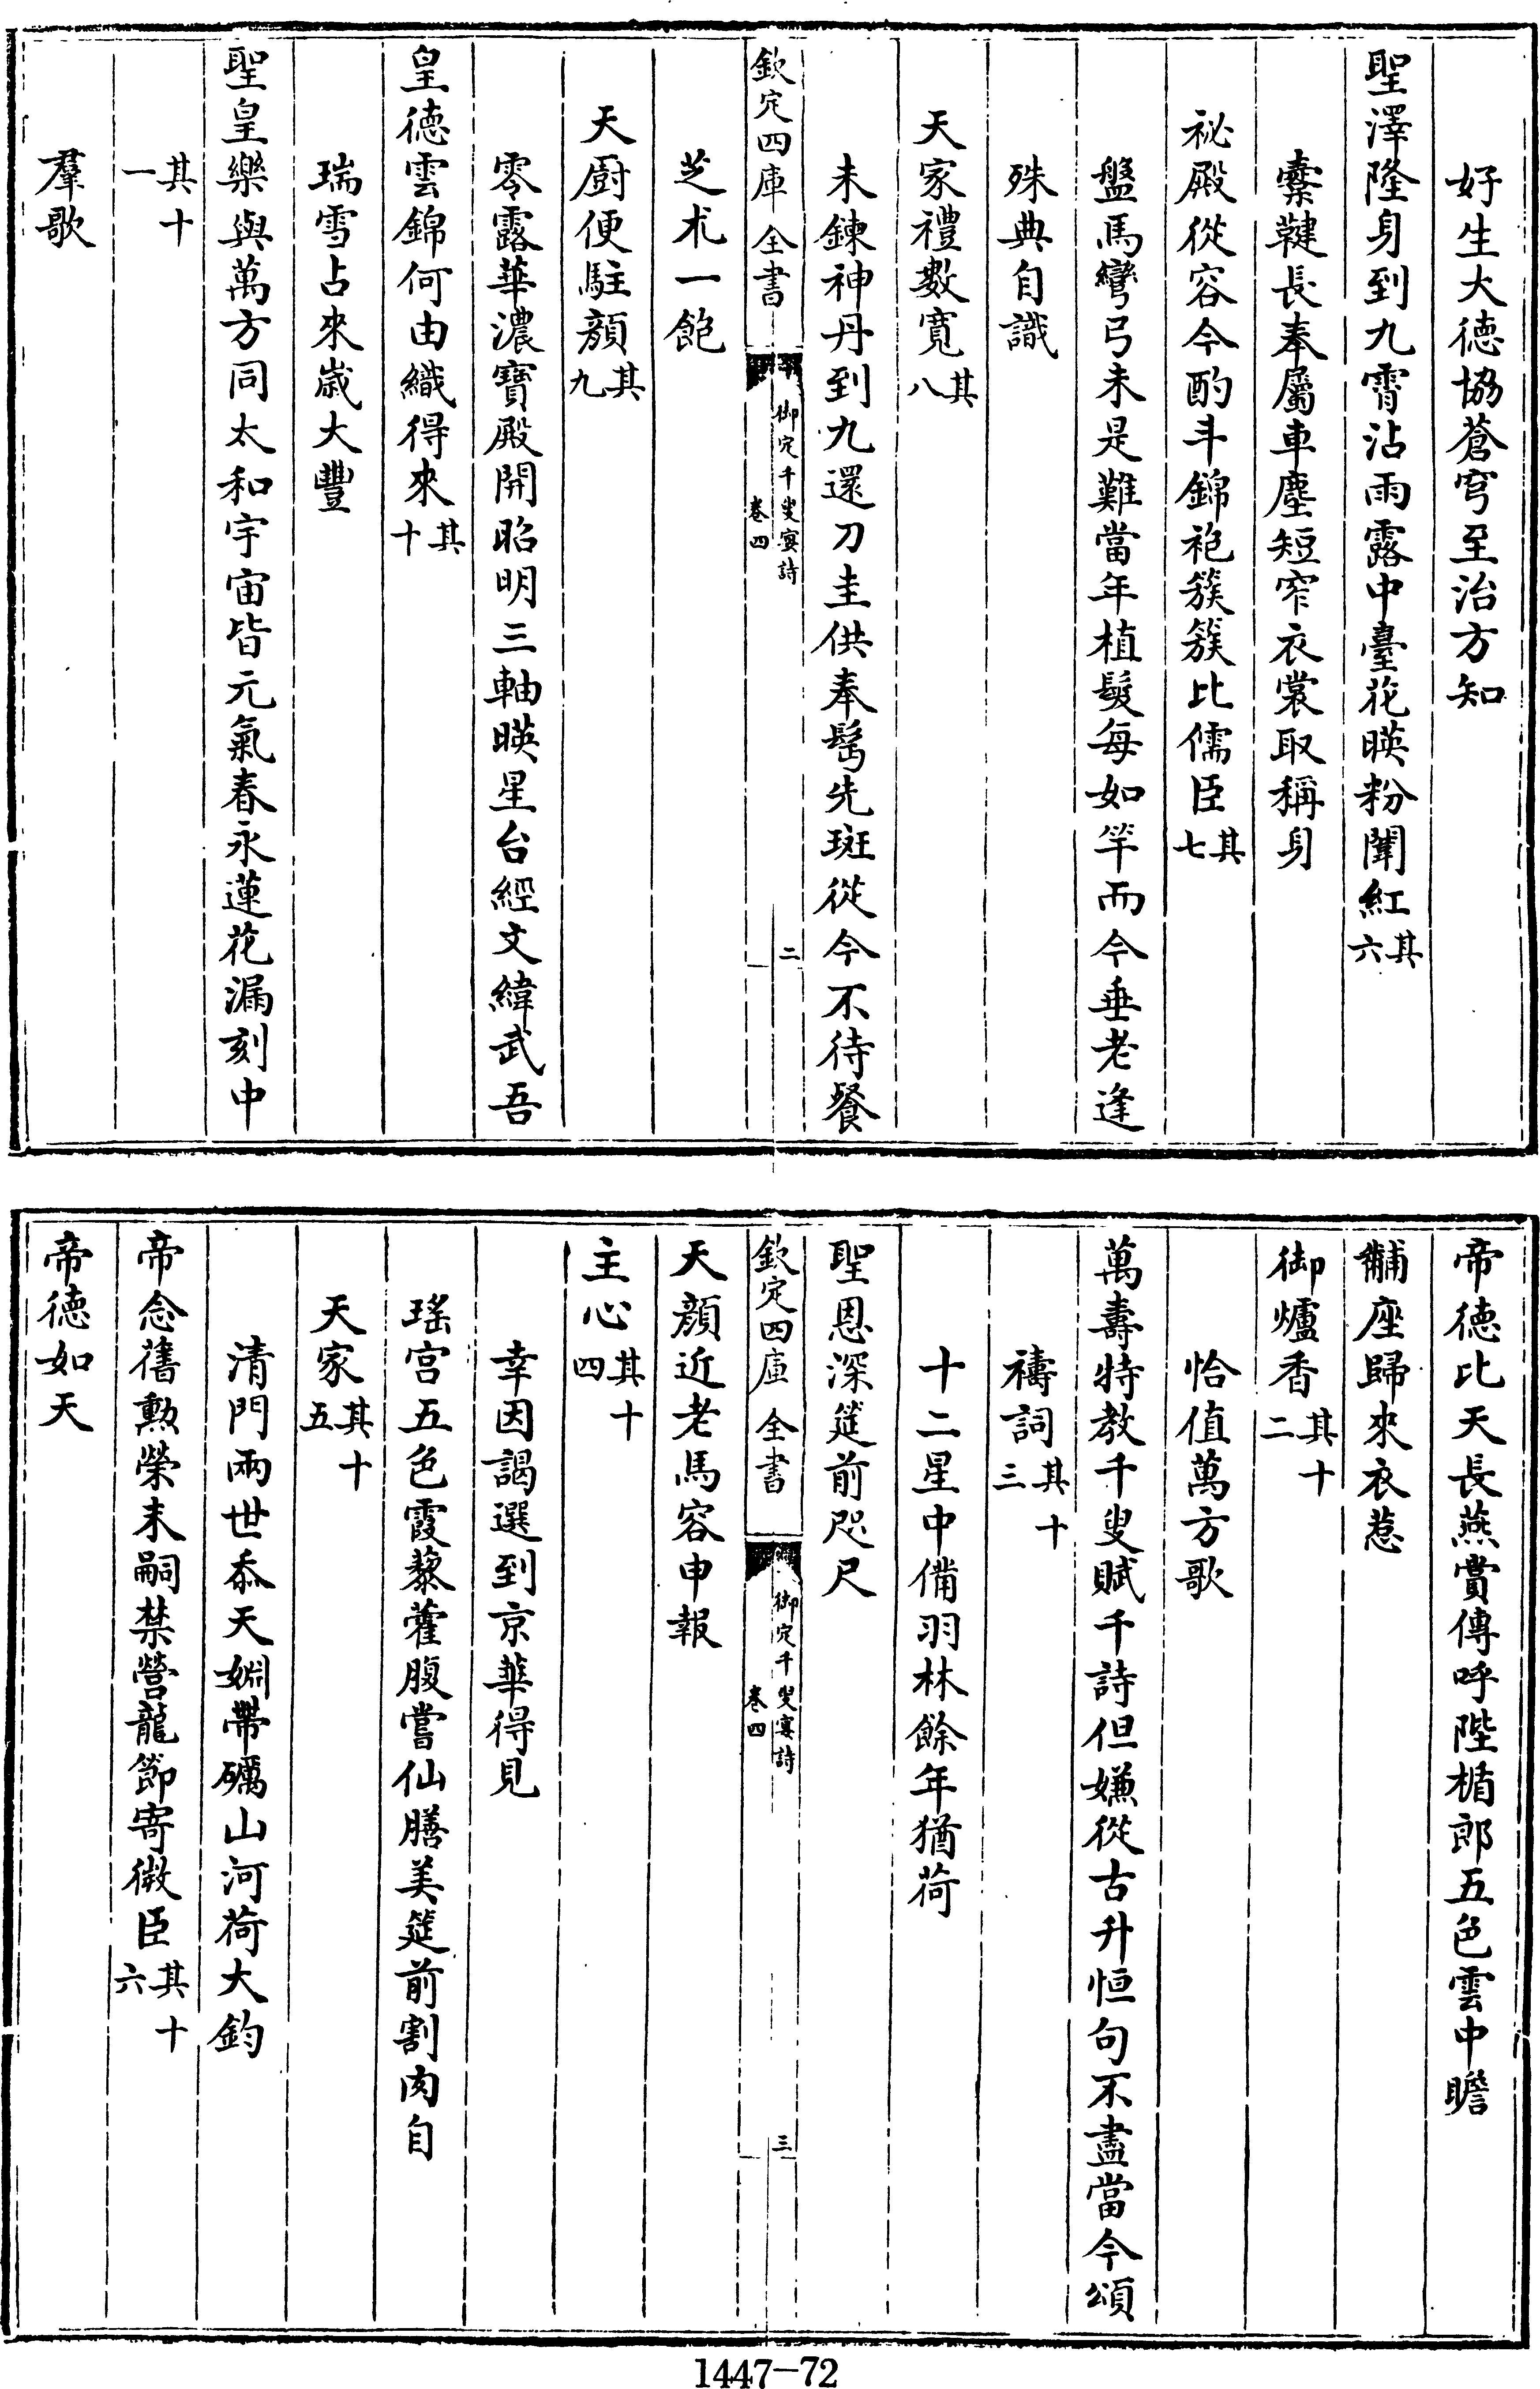 好生大德協蒼穹至治方知
聖澤隆身到九霄沾雨露中臺花暎粉闈紅其六
櫜鞬長奉屬車塵短窄衣裳取稱身
祕殿從容今酌斗錦袍簇簇比儒臣其七
盤馬彎弓未是難當年植髮每如竿而今垂老逢
殊典自識
天家禮數寬其八
未鍊神丹到九還刀圭供奉髩先斑從今不待餐
欽定四庫全書
御定千叟宴詩
卷四
二
芝朮一飽
天廚便駐顏其九
零露華濃寶殿開昭明三軸暎星台經文緯武吾
皇德雲錦何由織得來其十
瑞雪占來歲大豐
聖皇樂與萬方同太和宇宙皆元氣春永蓮花漏刻中
其十一
羣歌
帝德比天長燕賞傳呼陛楯郎五色雲中瞻
黼座歸來衣惹
御爐香其十二
恰值萬方歌
萬壽特教千叟賦千詩但嫌從古升恒句不盡當今頌
禱詞其十三
十二星中備羽林餘年猶荷
聖恩深筵前咫尺
欽定四庫全書
御定千叟宴詩
卷四
三
天顏近老馬容申報
主心其十四
幸因謁選到京華得見
瑤宮五色霞藜藿腹嘗仙膳美筵前割肉自
天家其十五
清門兩世忝天姻帶礪山河荷大鈞
帝念舊勲榮末嗣禁營龍節寄微臣其十六
帝德如天
1447-72